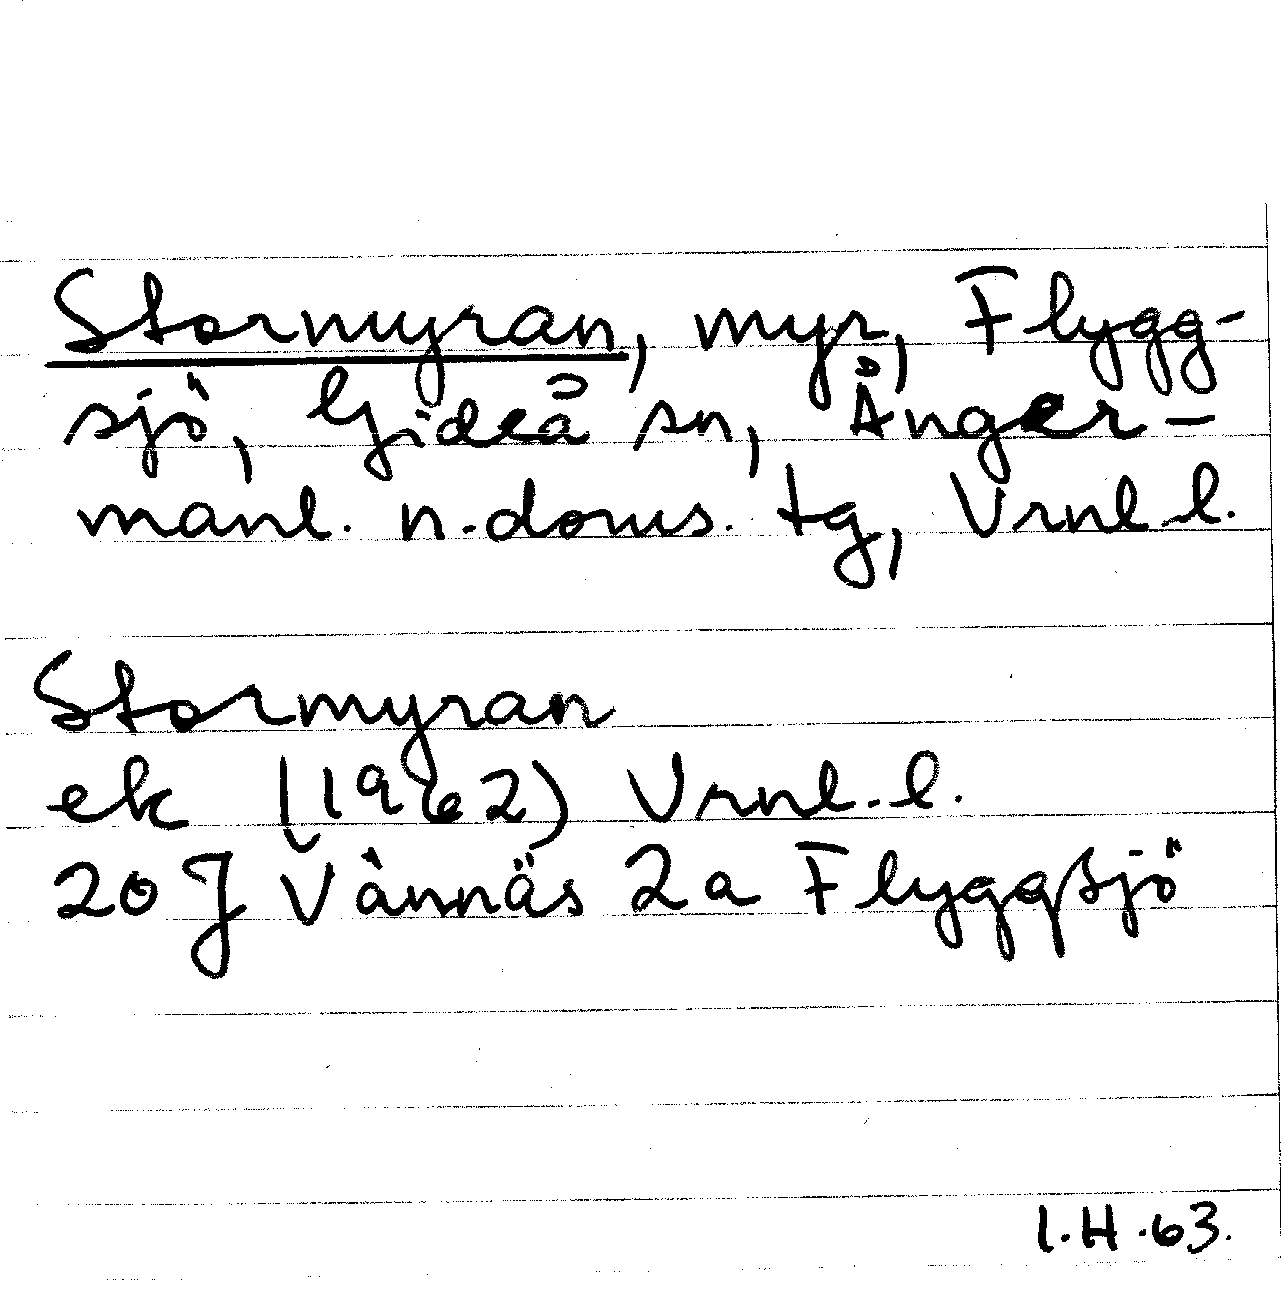 Stormyran, myr, Flygg-
sjö, Gideå sn, Ånger-
manl. n. doms. tg, Vrnl. l.
Stormyran
ek (1962) Vrnl. l.
20 J Vännäs 2a Flyggsjö
I.H.63.